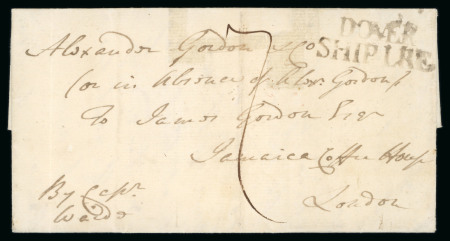 DOVER
SHIP LRE
Alexander Gordon
7
(or in Absence of Alexr. Gordon
To James Gordon Esqr
Jamaica Coffee House
London
By Capt.